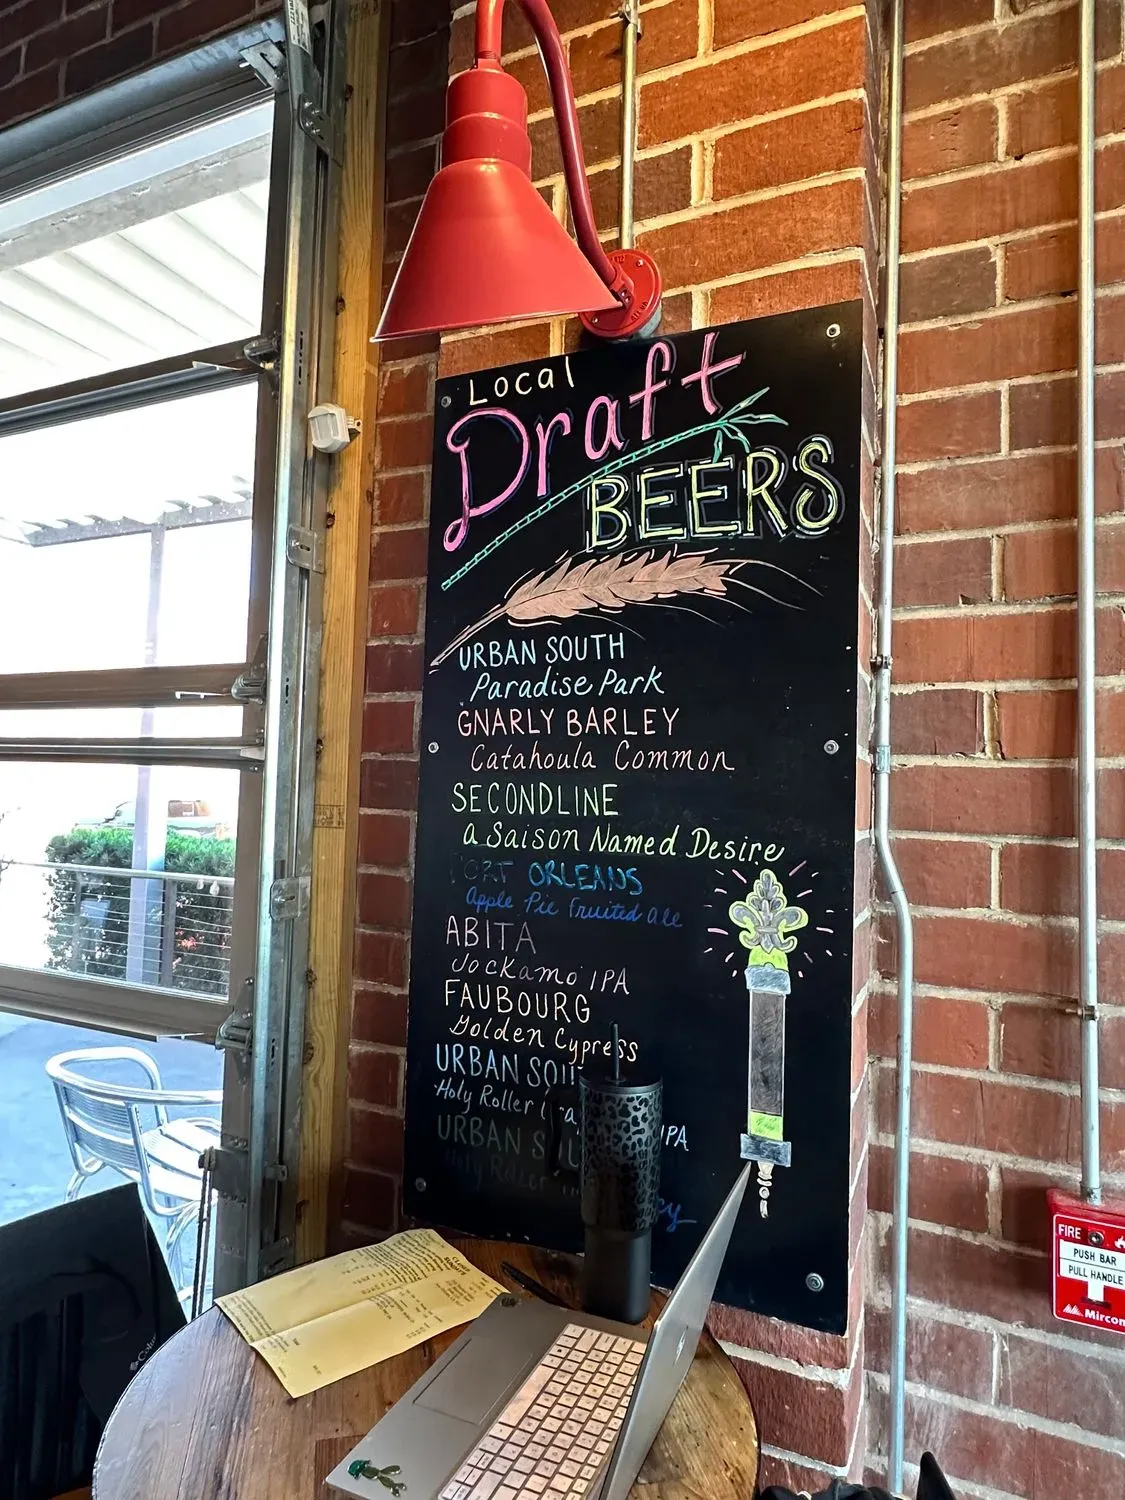 Local
Draft
BEERS
URBAN SOUTH
Paradise Park
GNARLY BARLEY
Catahoula Common
SECONDLINE
a Saison Named Desire
PORT ORLEANS
Apple Pie Fruited ale
ABITA
Jockamo IPA
FAUBOURG
Golden Cypress
URBAN SOU
Holy Roller
IPA
URBAN SOU
Holy Roller
FIRE
PUSH BAR
PULL HANDLE
Mircom